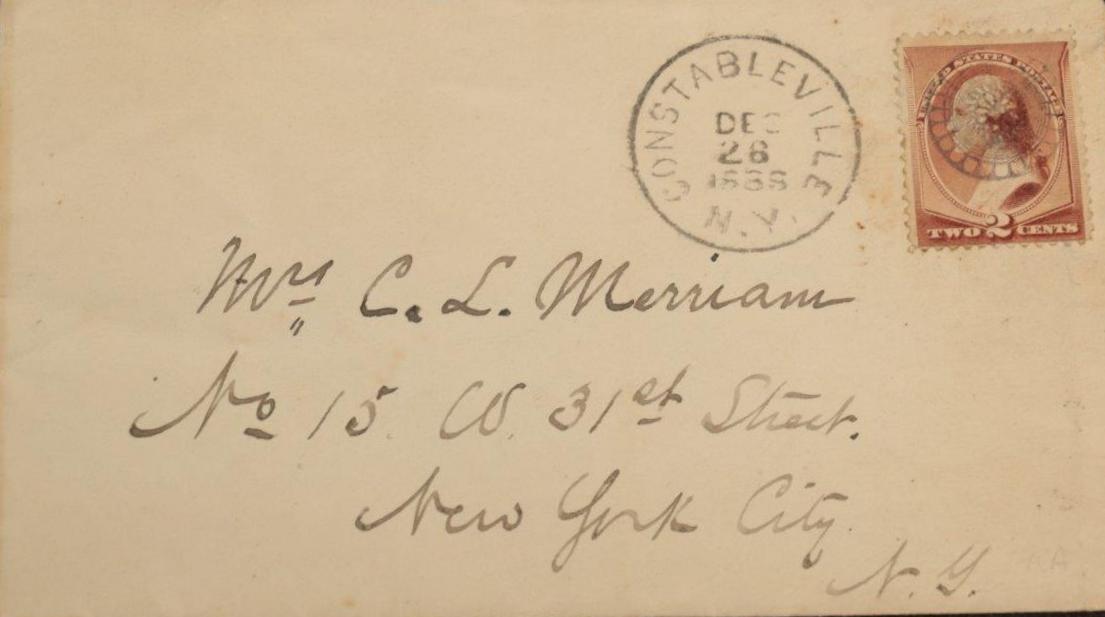 CONSTABLEVILLE
DEC
26
N.Y.
UNITED STATES POSTAGE
TWO 2 CENTS
Mrs C. L. Merriam
No 15. W. 31st Street.
New York City.
N. Y.